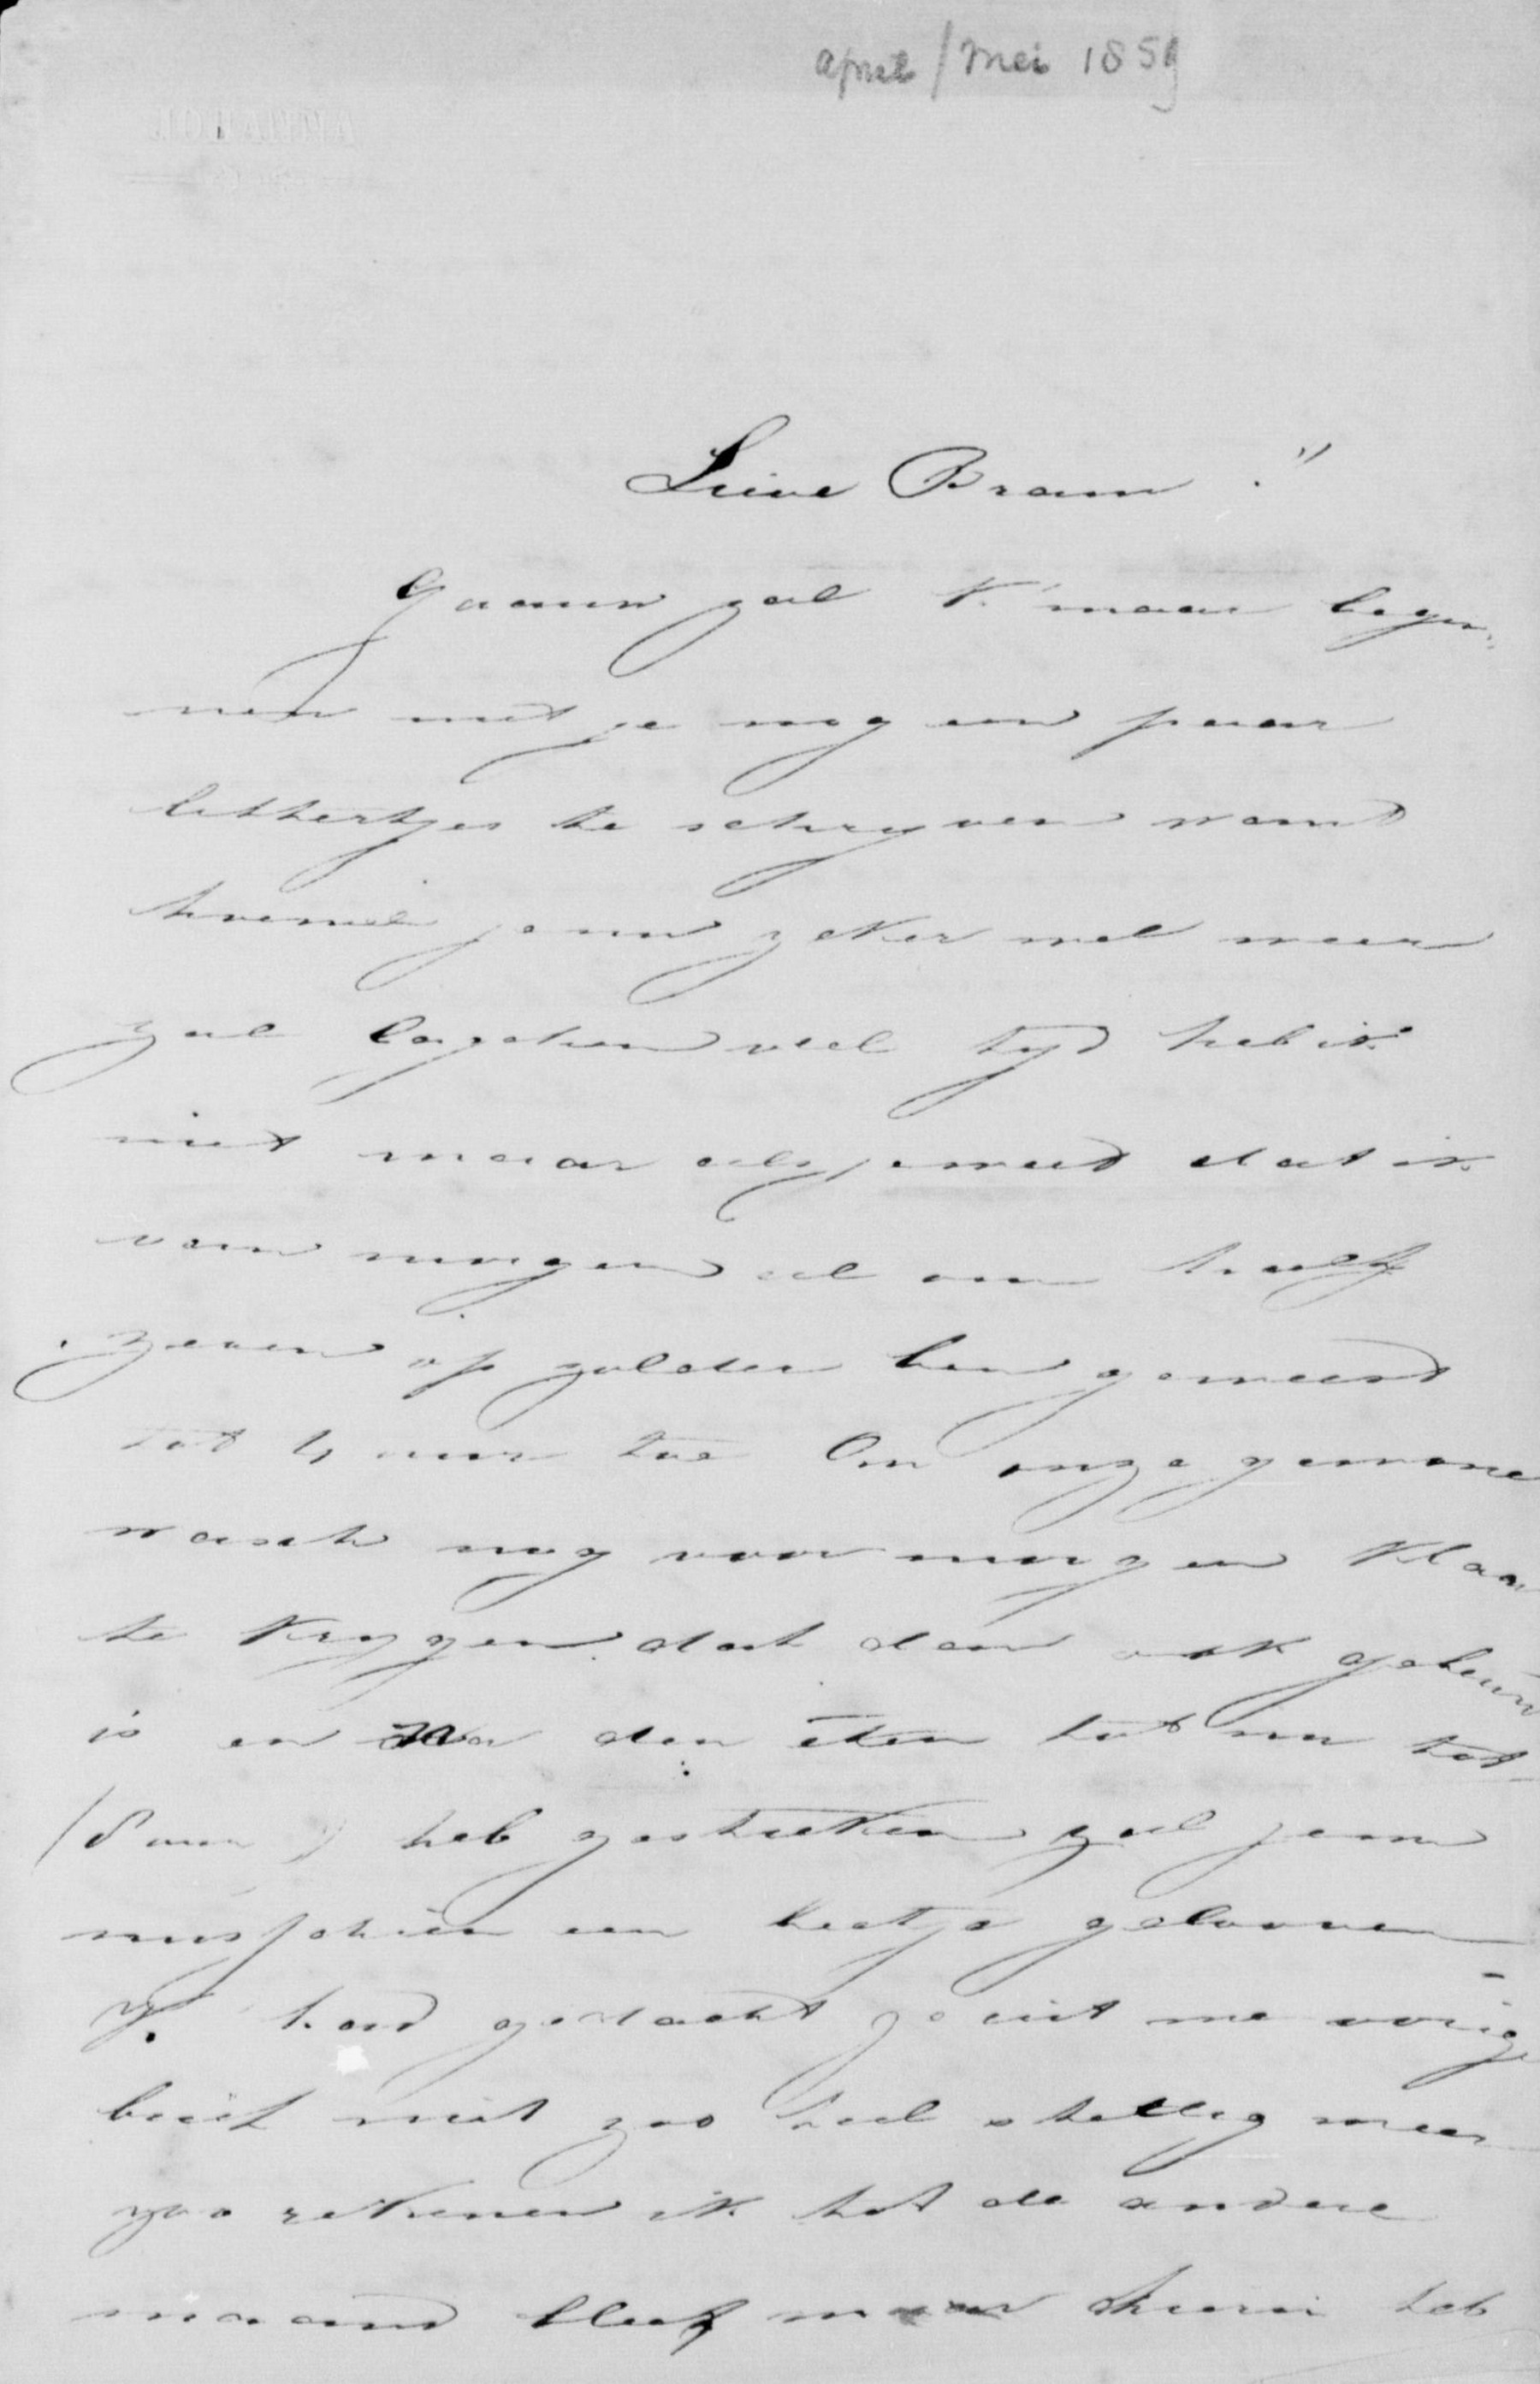 april / mei 1859
Lieve Bram !"
Gaauw zal k maar begin,,
nen met je nog een paar
lettertjes te schryven want
hoewel jenu zeker wel weer
zal lagchen veel tyd heb ik
niet maar als je weet dat ik
van morgen al om half
zeven op zolder ben geweest
tot 4 uur toe Om onze gewone
wasch nog voor morgen klaar
te krygen dat dan ook gebeurd
is en na den eten tot nu tot
(8 uur) heb gestreken zal jenu
misschien een beetje gelooven
Ik had gedacht je uit me vorig
brief niet zoo heel stellig meer
zoo rekenen ik tot de andere
maand bleef maar heb